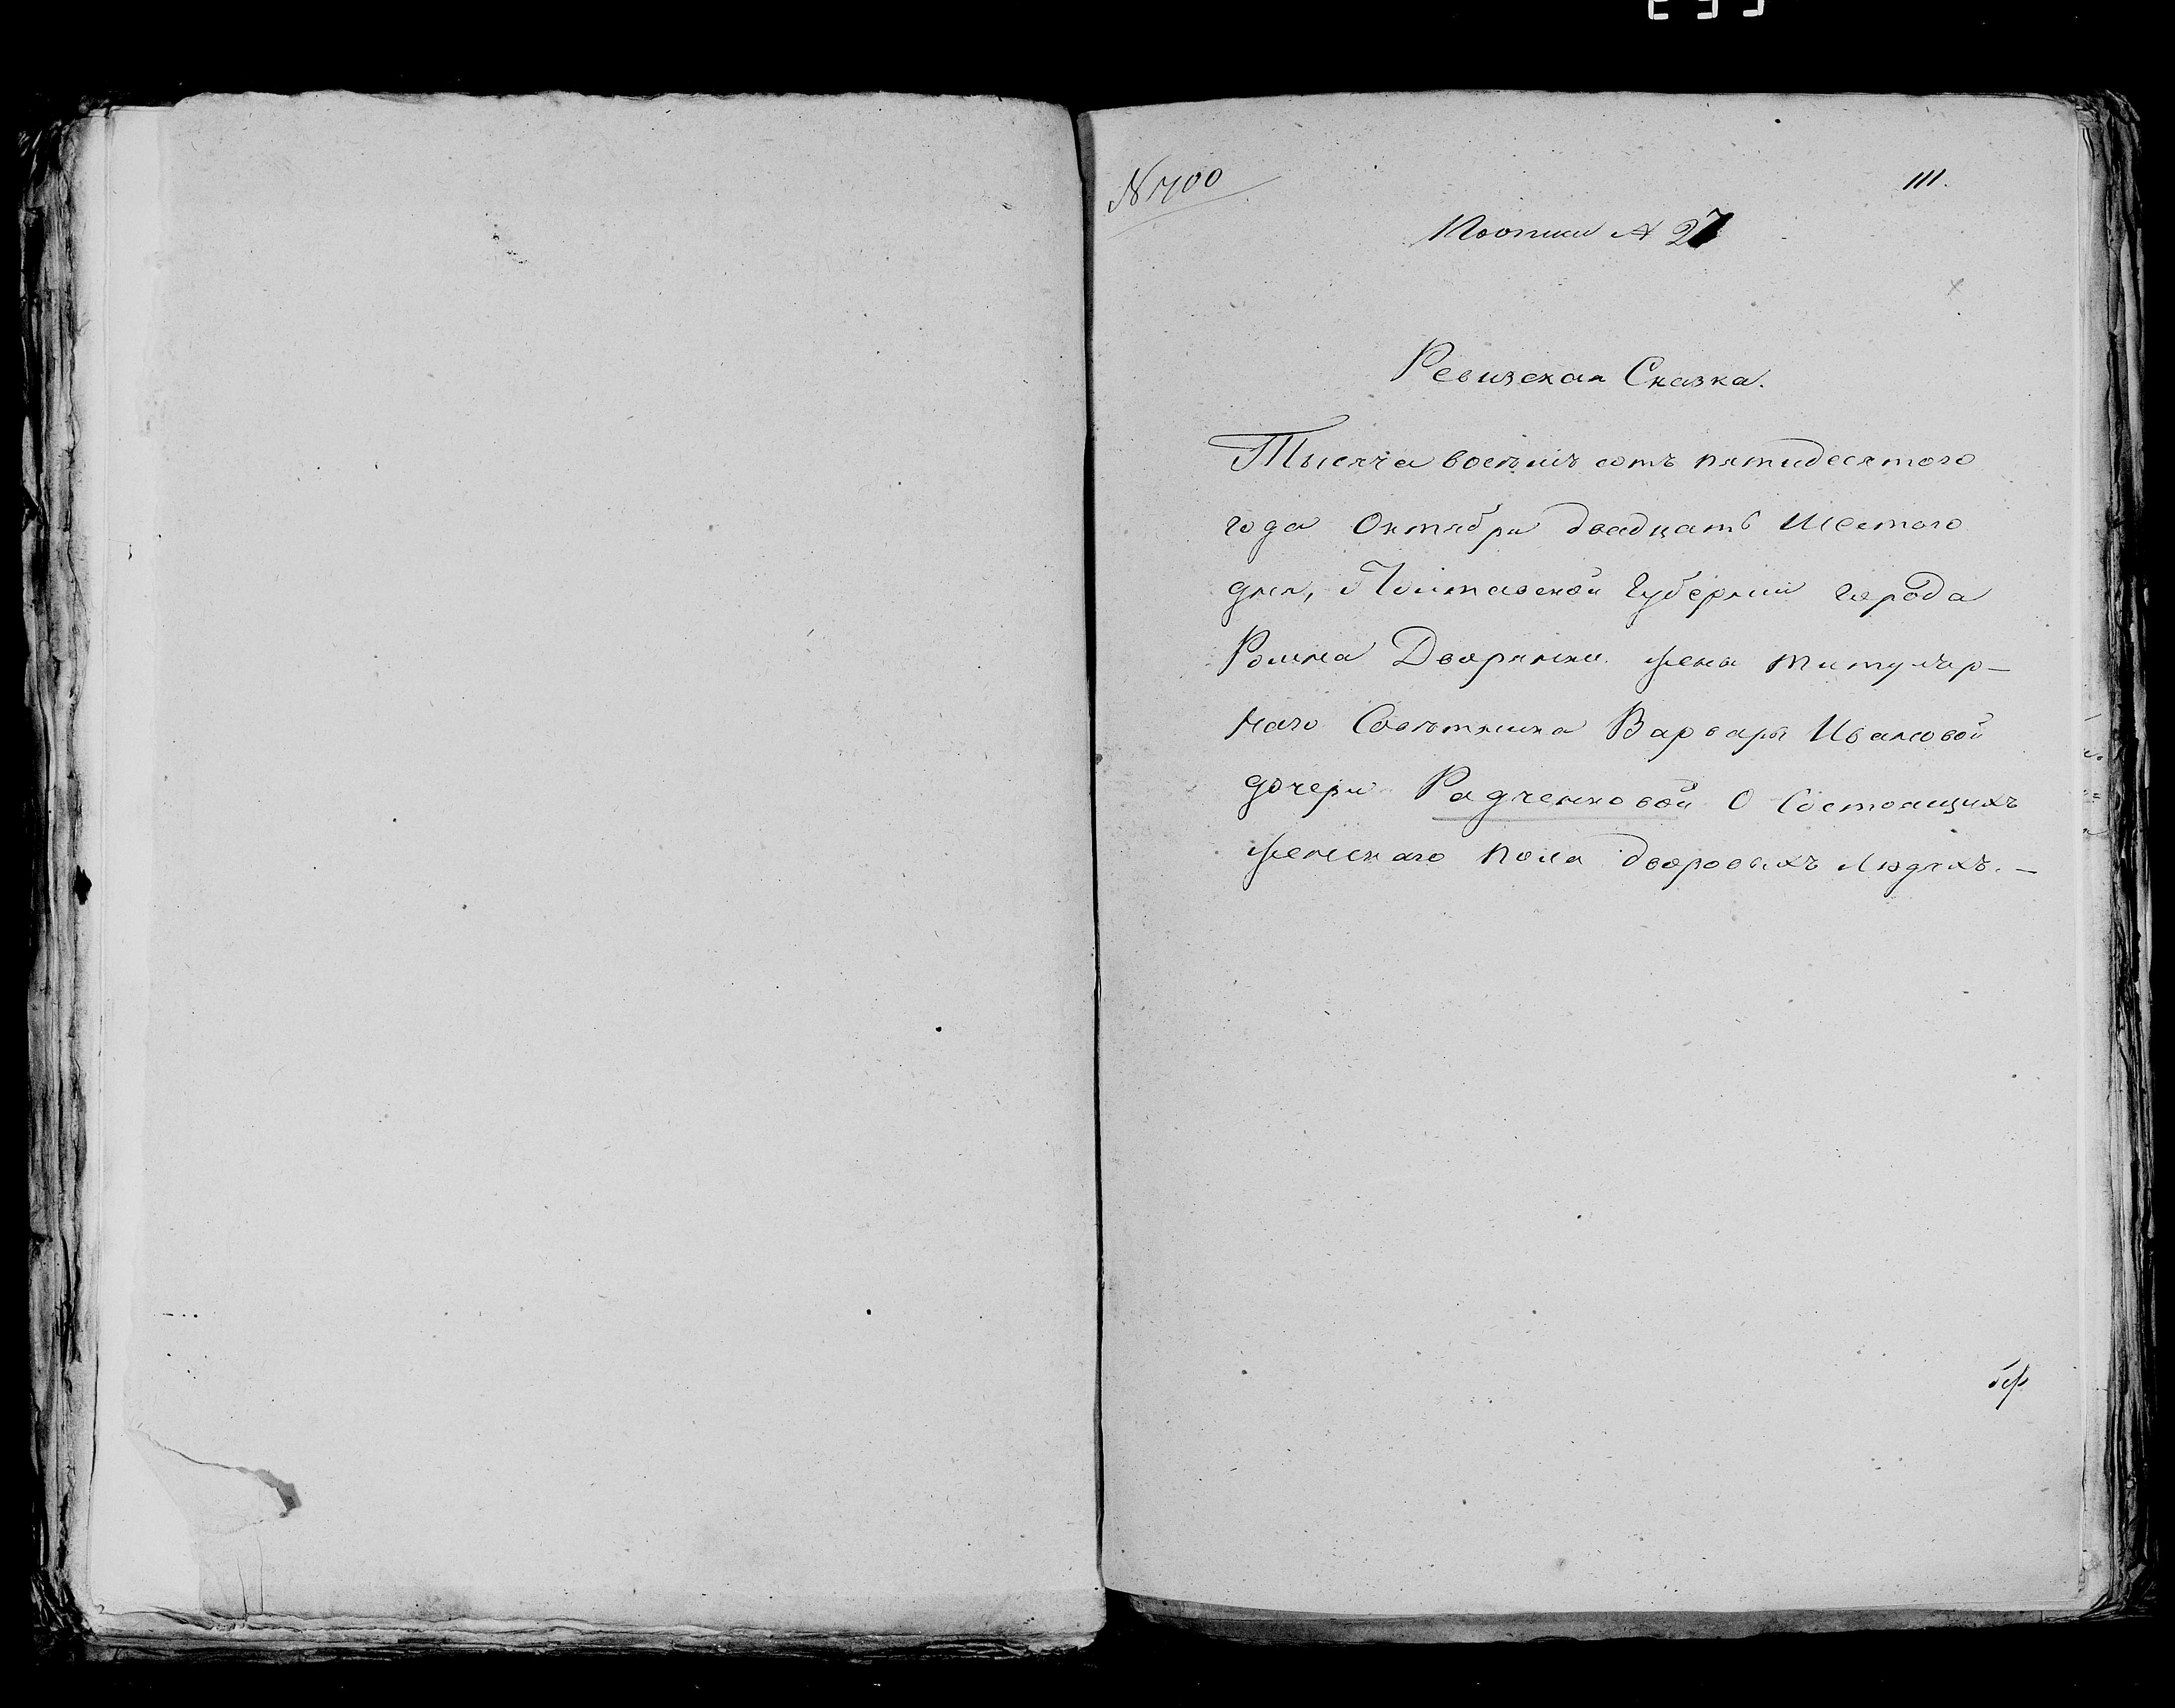 N 700
111.
Копии № 27
Ревизская Сказка.
Тысяча восемь сотъ пятидесятого
года Октября двадцать шестого
дня, Полтавской Губерніи города
Ромна Дворянки жена титуляр-
наго Советника Варвары Ивановой
дочери Радченковой О Состоящихъ
женскаго пола дворовыхъ людяхъ. —